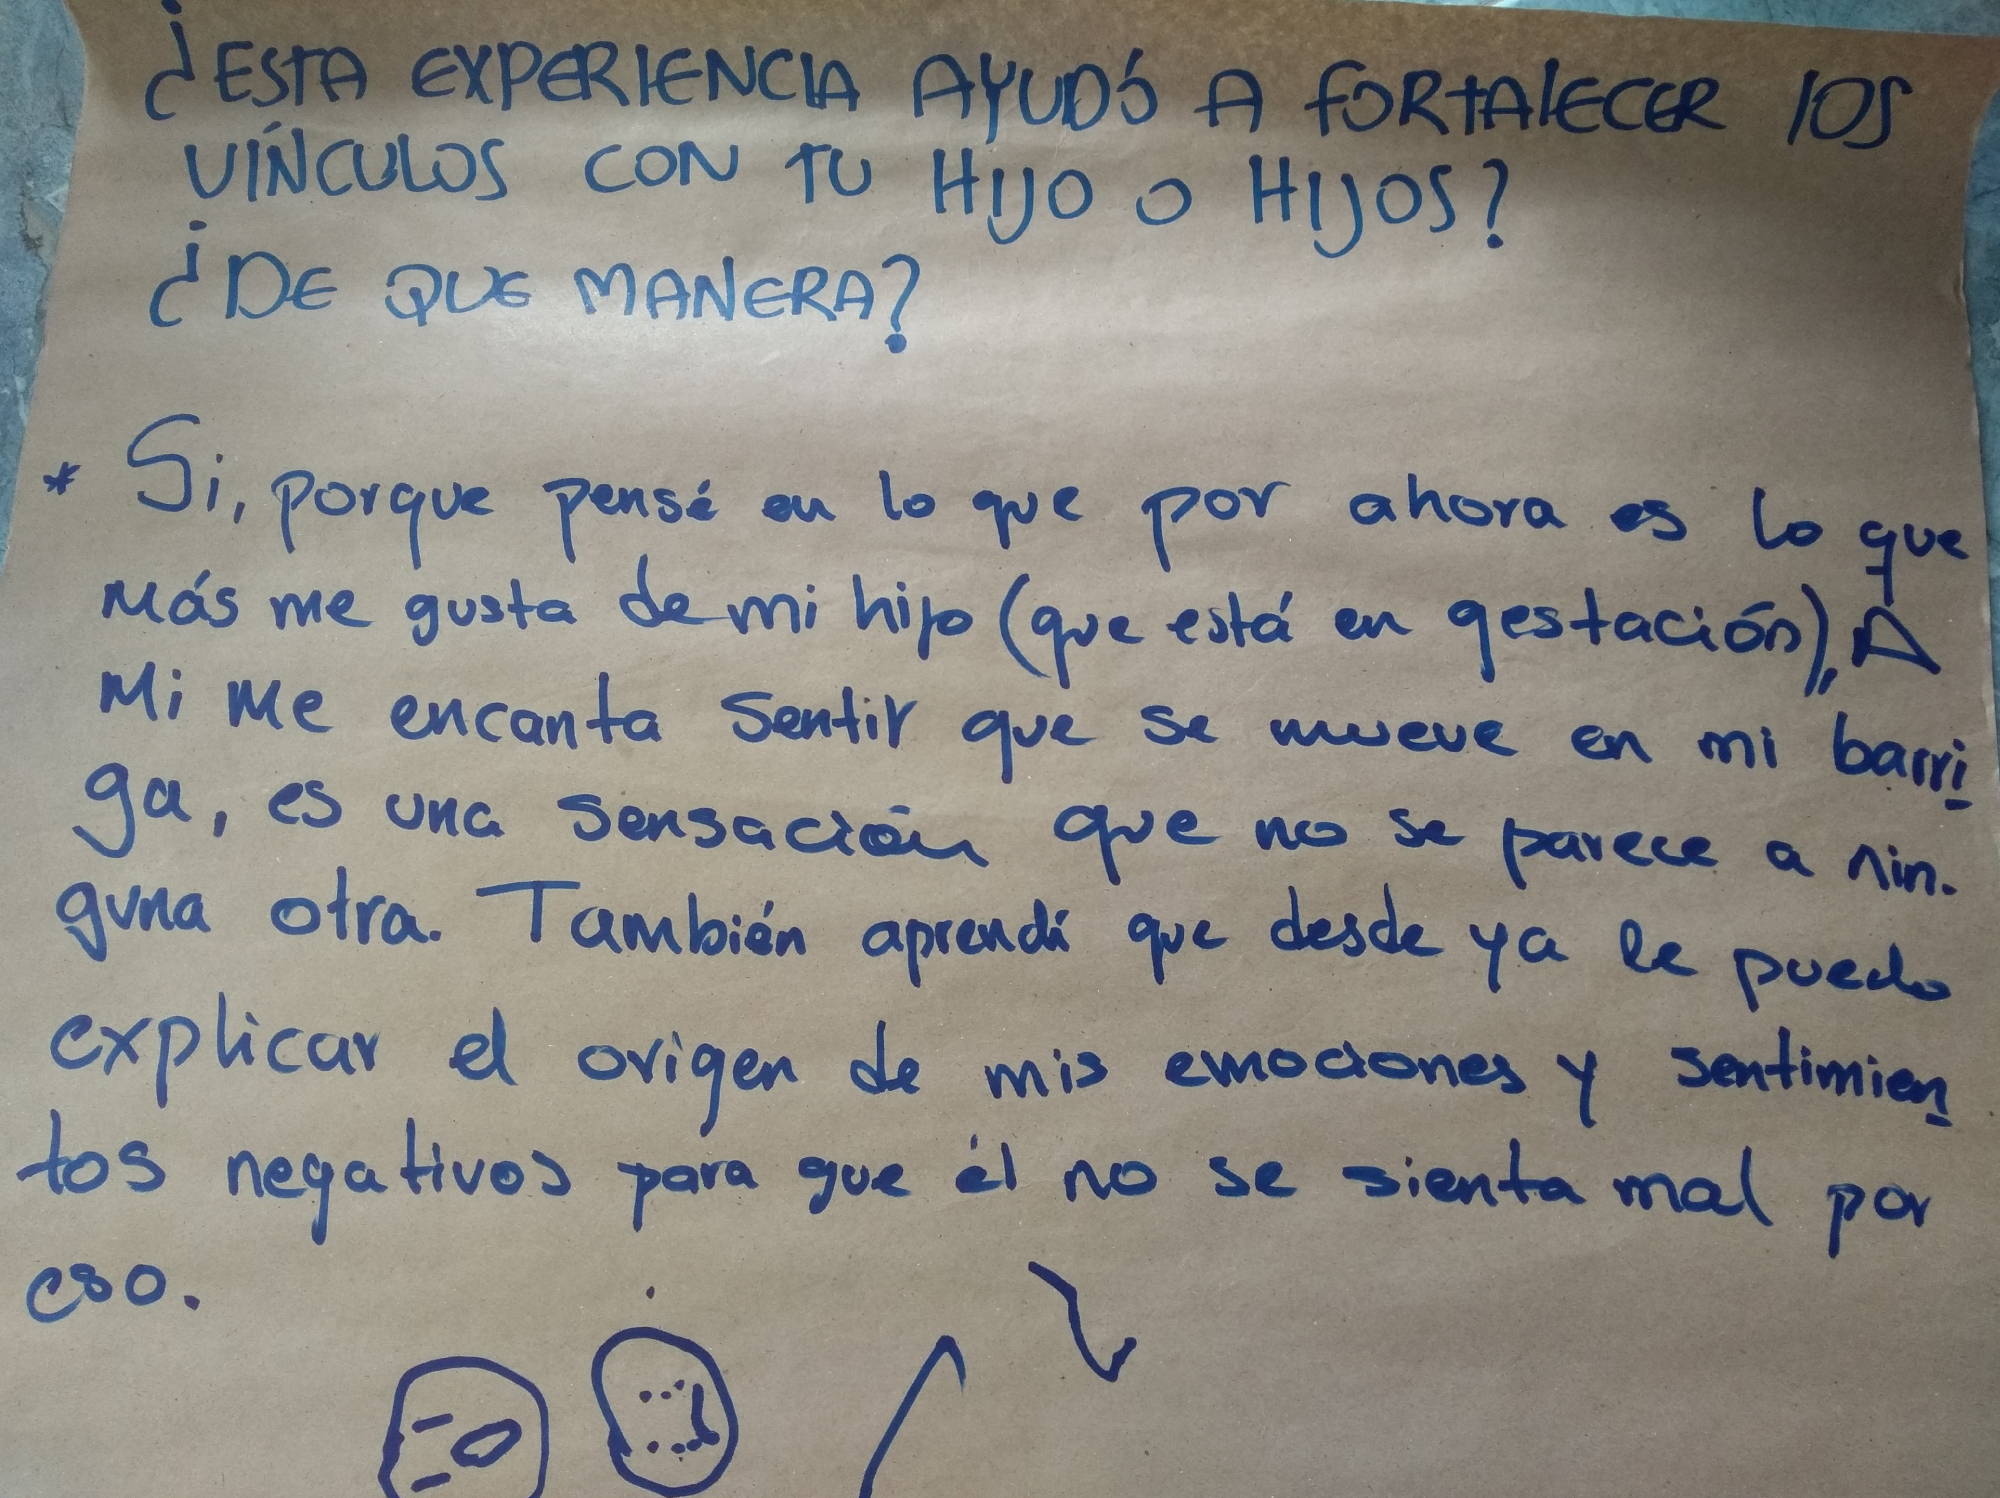 ¿ESTA EXPERIENCIA AYUDÓ A FORTALECER LOS
VÍNCULOS CON TU HIJO O HIJOS?
¿DE QUE MANERA?
* Si, porque pensé en lo que por ahora es lo que
más me gusta de mi hijo (que está en gestación), A
mi me encanta sentir que se mueve en mi barri
ga, es una sensación que no se parece a nin-
guna otra. También aprendí que desde ya le puedo
explicar el origen de mis emociones y sentimien
tos negativos para que él no se sienta mal por
eso.